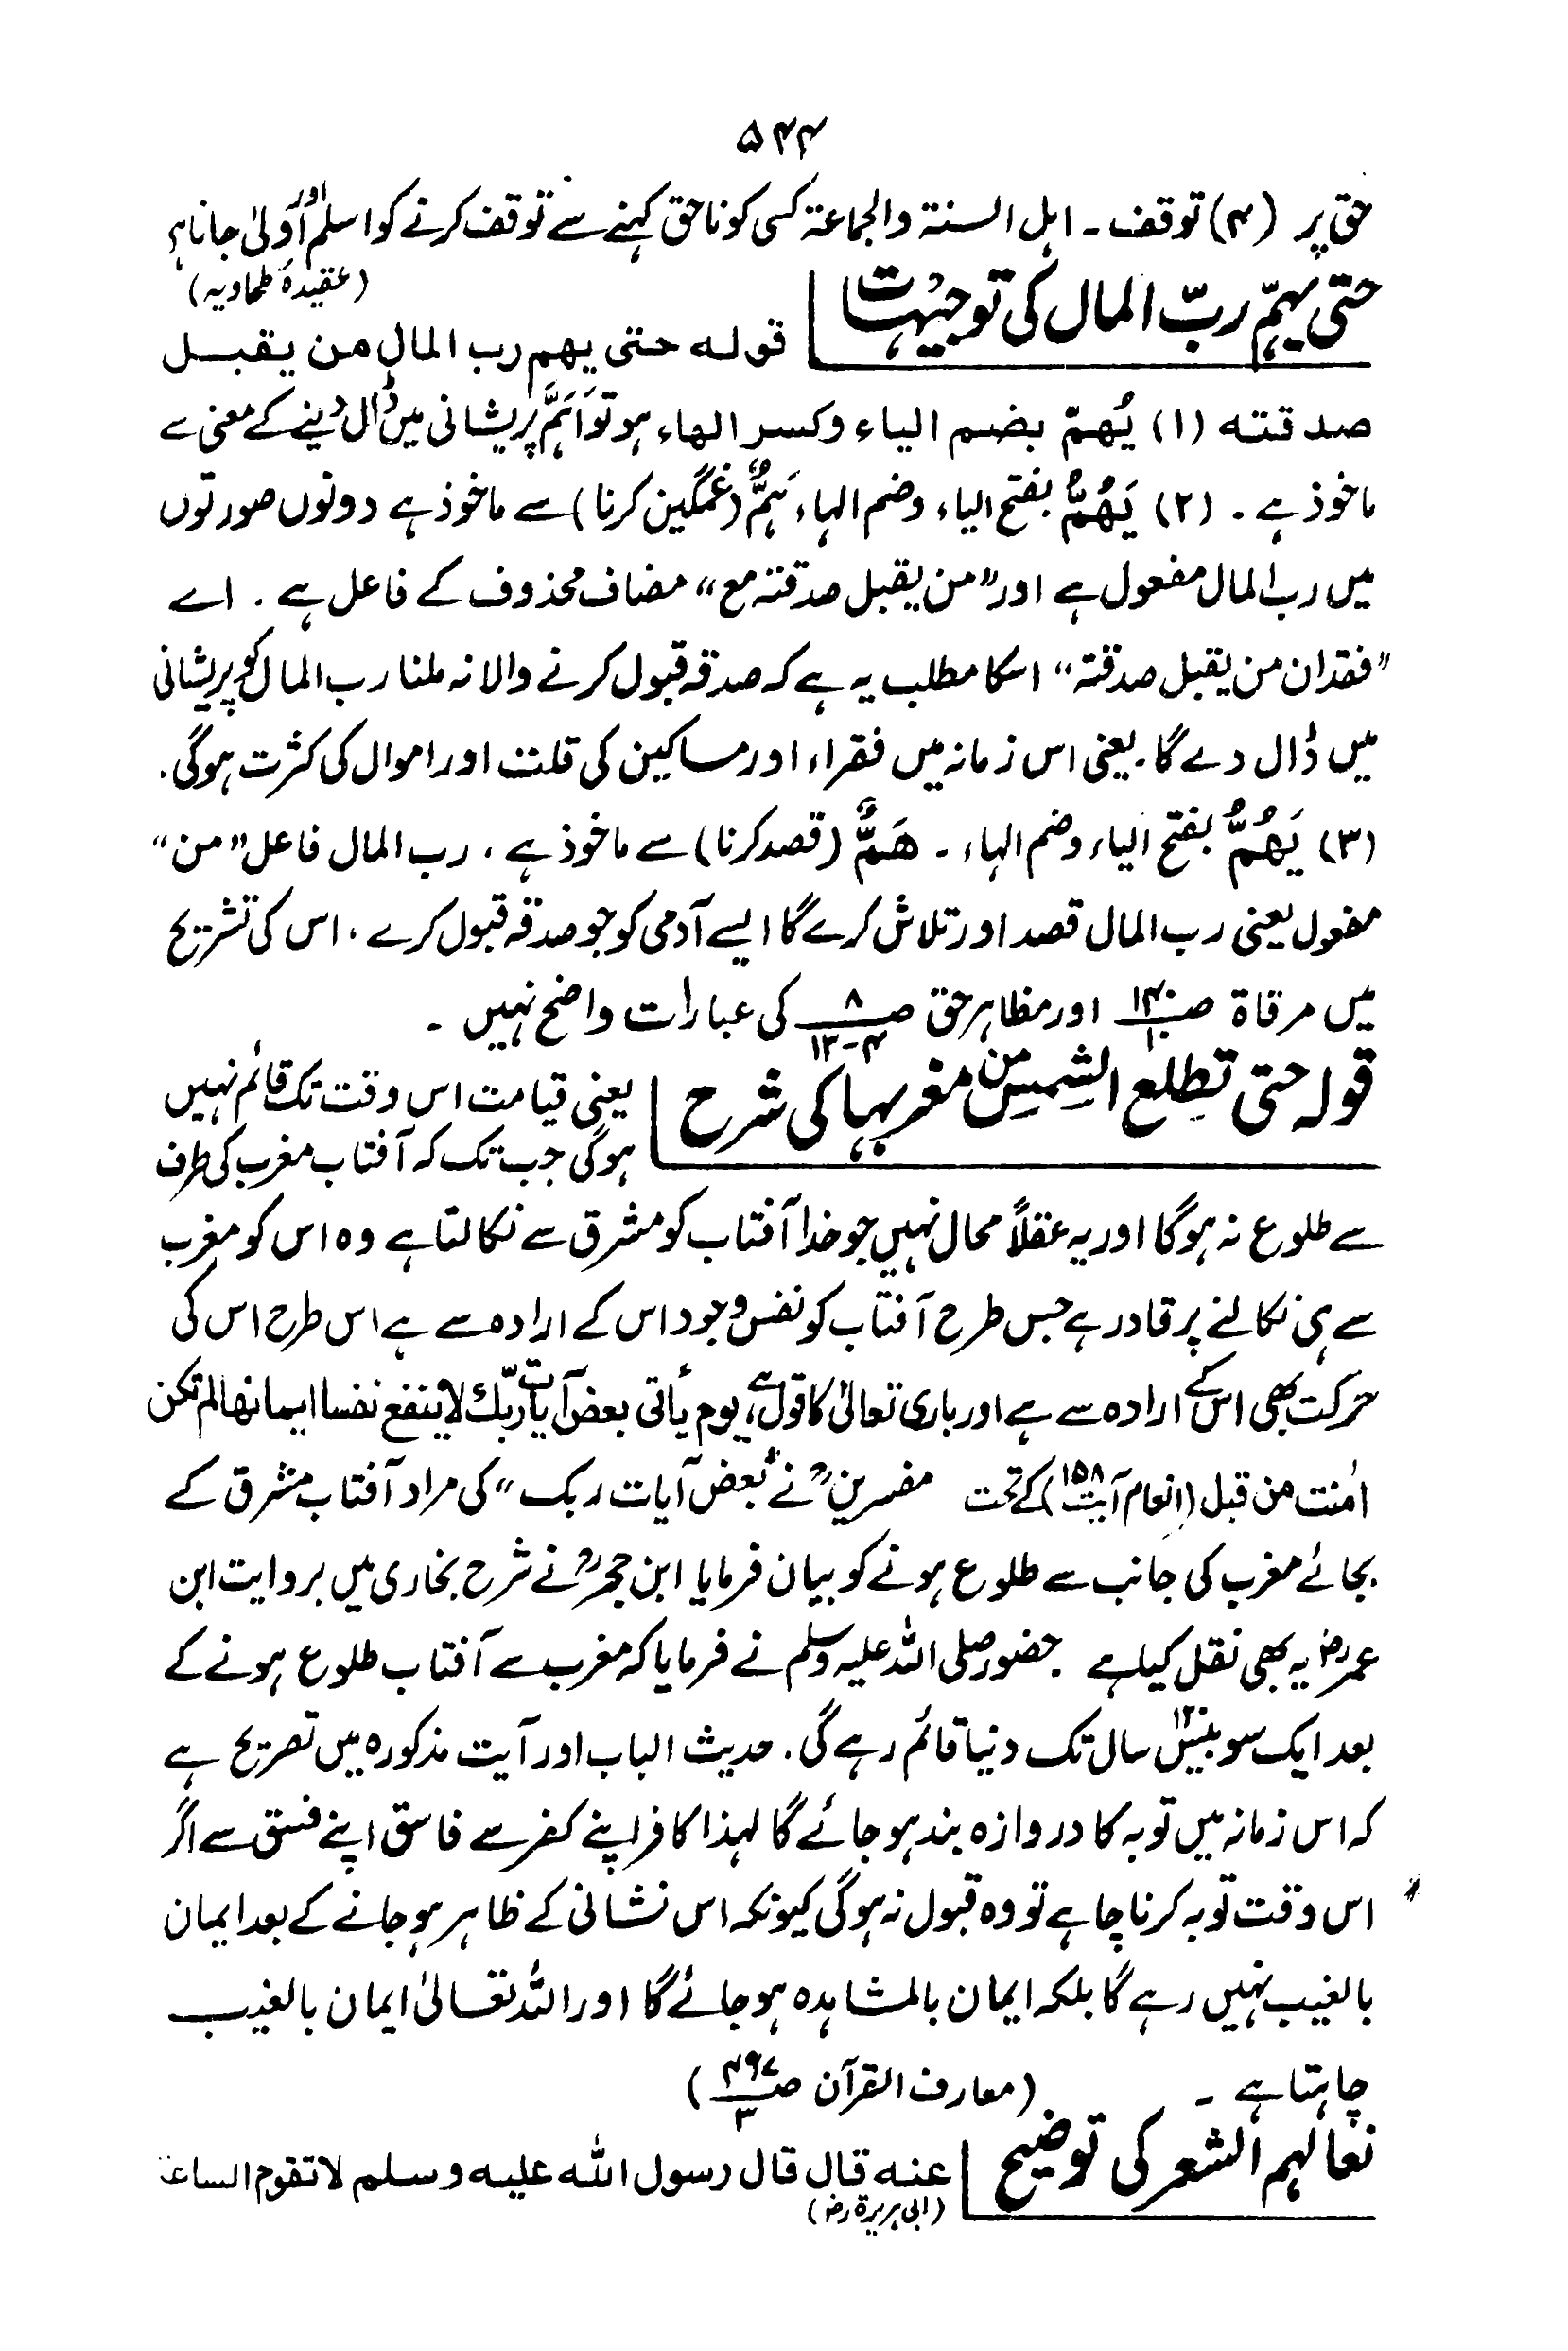 ۵۴۴
حق پر (۴) توقف ۔ اہل السنۃ والجماعۃ کسی کو ناحق کہنے سے توقف کرنے کو اسلم اور اَولیٰ جانا ہے
(عقیدۂ طحاویہ)
حتی یہمّ ربّ المال کی توجیہات
قولہ حتی یھم رب المال من یقبل
صدقتہ (۱) یُھمّ بضم الیاء وکسر الھاء ہو تو اَہَمَّ پریشانی میں ڈال دینے کے معنی سے
ماخوذ ہے ۔ (۲) یَھُمُّ بفتح الیاء وضم الہاء، ہَمٌّ (غمگین کرنا) سے ماخوذ ہے دونوں صورتوں
میں رب المال مفعول ہے اور ”من یقبل صدقتہ مع“ مضاف محذوف کے فاعل ہے ۔ اے
”فقدان من یقبل صدقتہ“ اسکا مطلب یہ ہے کہ صدقہ قبول کرنے والا نہ ملنا رب المال کو پریشانی
میں ڈال دے گا ۔ یعنی اس زمانہ میں فقراء اور مساکین کی قلت اور اموال کی کثرت ہوگی ۔
(۳) یَھُمُّ بفتح الیاء وضم الہاء ۔ ھَمٌّ (قصد کرنا) سے ماخوذ ہے ، رب المال فاعل ”من“
مفعول یعنی رب المال قصد اور تلاش کرے گا ایسے آدمی کو جو صدقہ قبول کرے ، اس کی تشریح
میں مرقاۃ صـ ۱۴۰/۱۰ اور مظاہر حق صـ ۸/۴-۱۳ کی عبارات واضح نہیں ۔
قولہ حتی تطلع الشمس من مغربہا کی شرح
یعنی قیامت اس وقت تک قائم نہیں
ہوگی جب تک کہ آفتاب مغرب کی طرف
سے طلوع نہ ہوگا اور یہ عقلاً محال نہیں جو خدا آفتاب کو مشرق سے نکالتا ہے وہ اس کو مغرب
سے ہی نکالنے پر قادر ہے جس طرح آفتاب کو نفس وجود اس کے ارادہ سے ہے اس طرح اس کی
حرکت بھی اس کے ارادہ سے ہے اور باری تعالیٰ کا قول ہے ، یوم یأتی بعض آیات ربّک لا ینفع نفسا ایمانھا لم تکن
اٰمنت من قبل (انعام آیت ۱۵۸) کے تحت مفسرینؒ نے ”بعض آیات ربک“ کی مراد آفتاب مشرق کے
بجائے مغرب کی جانب سے طلوع ہونے کو بیان فرمایا ابن حجرؒ نے شرح بخاری میں بروایت ابن
عمرؓ یہ بھی نقل کیا ہے ۔ حضور صلی اللہ علیہ وسلم نے فرمایا کہ مغرب سے آفتاب طلوع ہونے کے
بعد ایک سو بیس ۱۲۰ سال تک دنیا قائم رہے گی ۔ حدیث الباب اور آیت مذکورہ میں تصریح ہے
کہ اس زمانہ میں توبہ کا دروازہ بند ہو جائے گا لہذا کافر اپنے کفر سے فاسق اپنے فسق سے اگر
اس وقت توبہ کرنا چاہے تو وہ قبول نہ ہوگی کیونکہ اس نشانی کے ظاہر ہو جانے کے بعد ایمان
بالغیب نہیں رہے گا بلکہ ایمان بالمشاہدہ ہو جائے گا اور اللہ تعالیٰ ایمان بالغیب
چاہتا ہے ۔ (معارف القرآن صـ ۴۹۷/۳)
نعالہم الشعر کی توضیح
عنہ قال قال رسول اللہ علیہ وسلم لا تقوم الساعۃ
(ابی ہریرۃ رض)